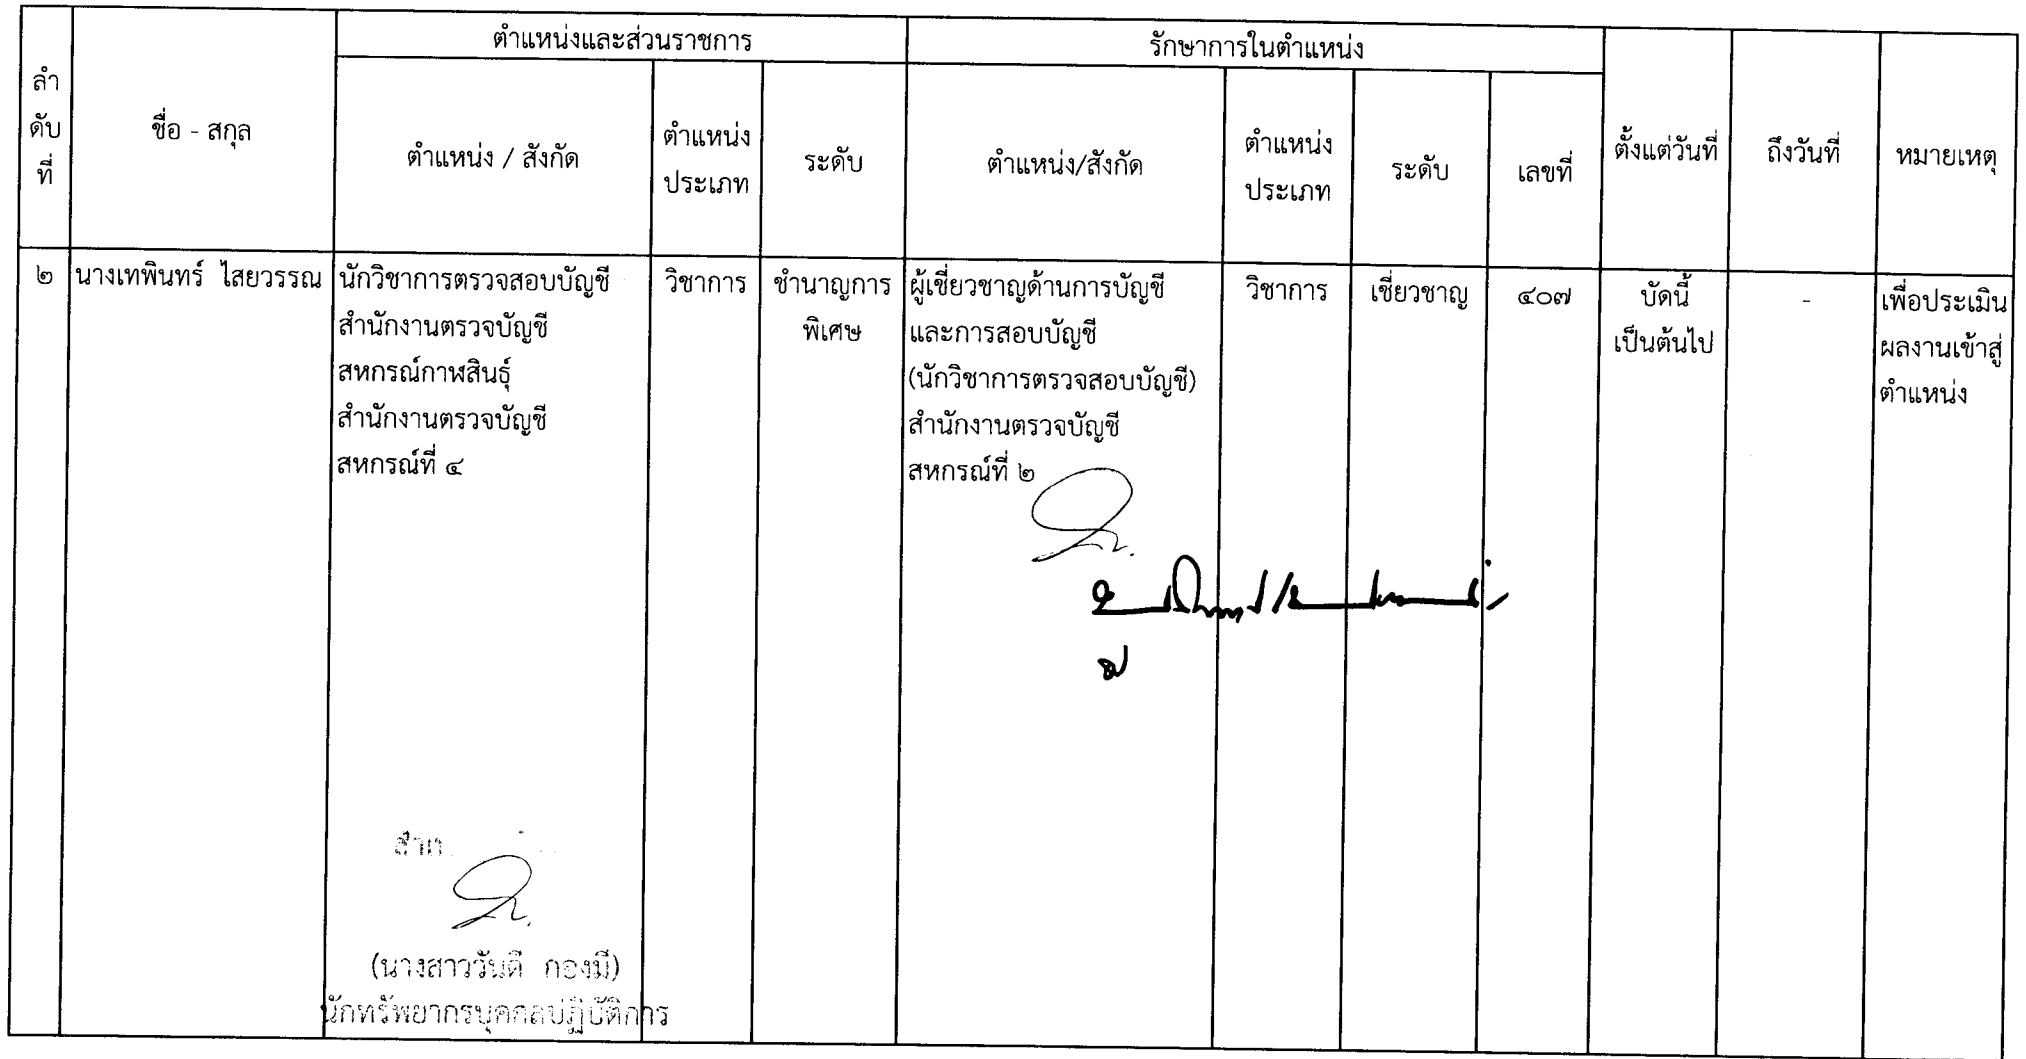 ตำแหน่งและส่วนราชการ รักษาการในตำแหน่ง
ลำ
ดับ
ที่
ชื่อ - สกุล
ตำแหน่ง / สังกัด
ตำแหน่ง
ประเภท
ระดับ
ตำแหน่ง/สังกัด
ตำแหน่ง
ประเภท
ระดับ
เลขที่
ตั้งแต่วันที่
ถึงวันที่
หมายเหตุ
๒
นางเทพินทร์ ไสยวรรณ
นักวิชาการตรวจสอบบัญชี
สำนักงานตรวจบัญชี
สหกรณ์กาฬสินธุ์
สำนักงานตรวจบัญชี
สหกรณ์ที่ ๔
วิชาการ
ชำนาญการ
พิเศษ
ผู้เชี่ยวชาญด้านการบัญชี
และการสอบบัญชี
(นักวิชาการตรวจสอบบัญชี)
สำนักงานตรวจบัญชี
สหกรณ์ที่ ๒
วิชาการ
เชี่ยวชาญ
๔๐๗
บัดนี้
เป็นต้นไป
-
เพื่อประเมิน
ผลงานเข้าสู่
ตำแหน่ง
(นางสาววันดี กองมี)
นักทรัพยากรบุคคลปฏิบัติการ